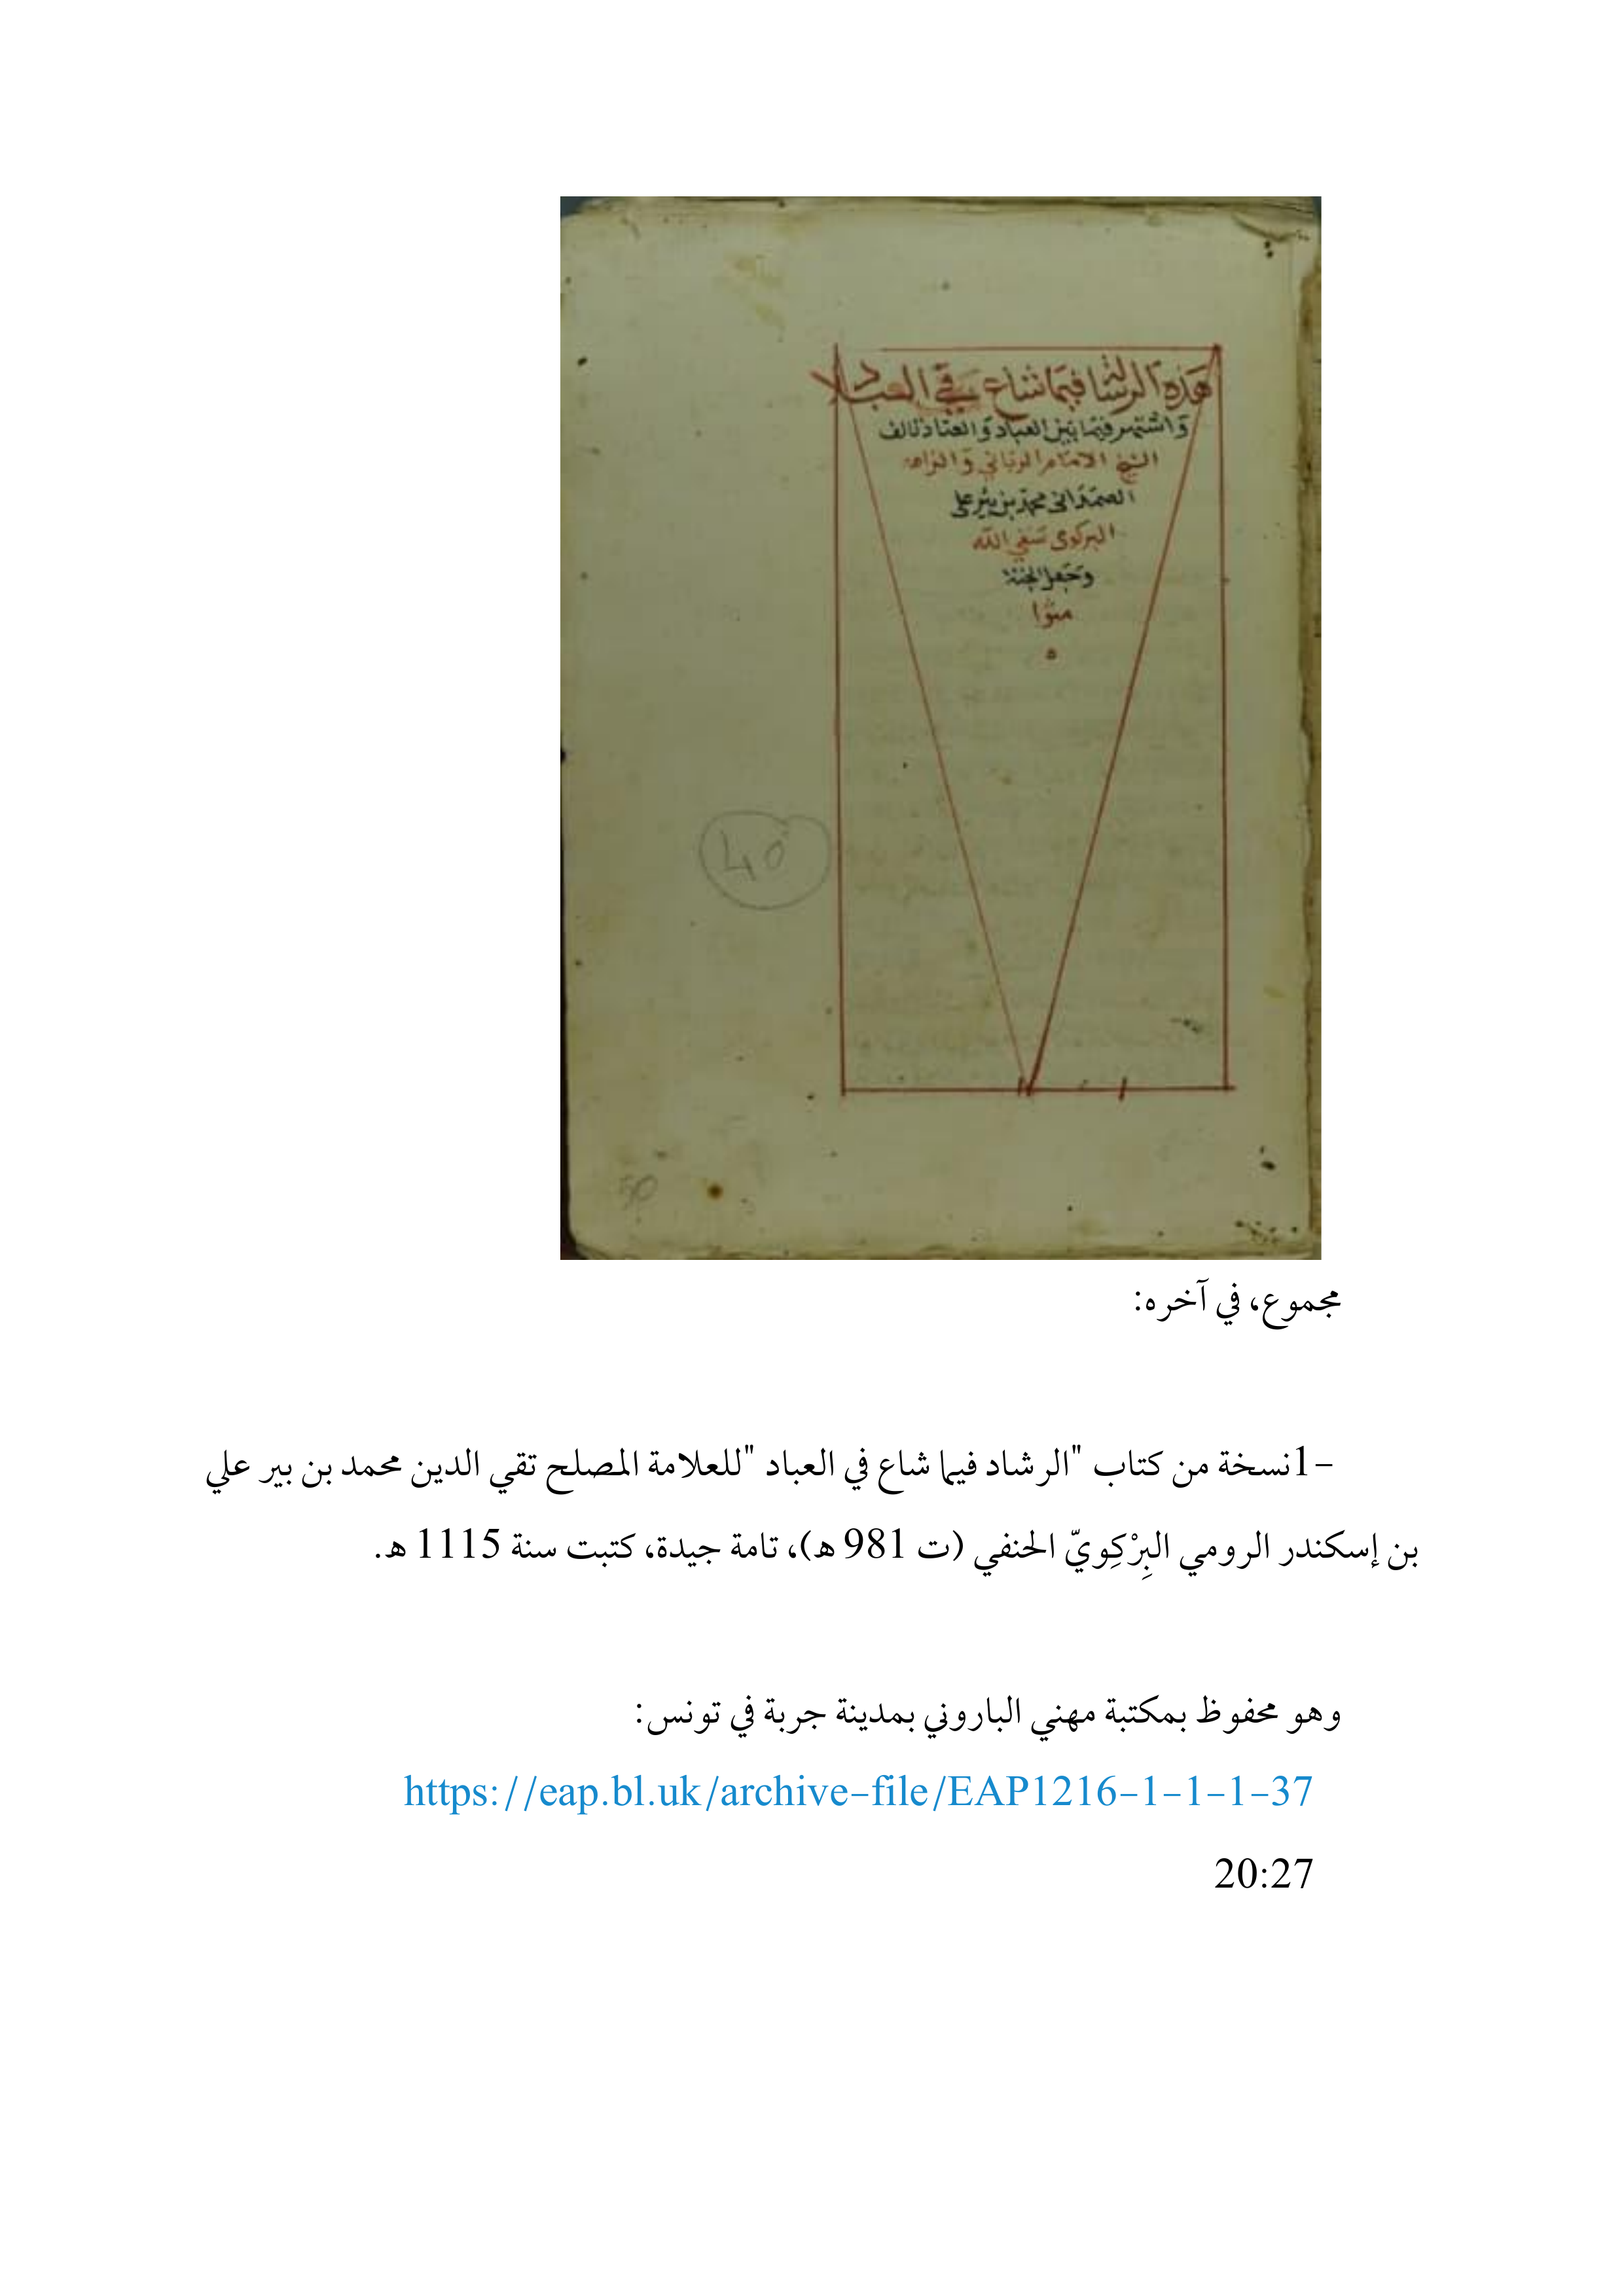 هَذِهِ الرسالة فيما شاع في العباد
وَاشتهر فيما بين العباد وَالعباد تالف
الشيخ الامام الرباني وَالزاهد
الصمَدَانى محمّد بن بير على
البركوى سَقي الله
وَجَعل الجنة
مثوا
40
50
مجموع، في آخره:
-1نسخة من كتاب "الرشاد فيما شاع في العباد "للعلامة المصلح تقي الدين محمد بن بير علي
بن إسكندر الرومي البِرْكِويّ الحنفي (ت 981 هـ)، تامة جيدة، كتبت سنة 1115 هـ.
وهو محفوظ بمكتبة مهني الباروني بمدينة جربة في تونس:
https://eap.bl.uk/archive-file/EAP1216-1-1-1-37
20:27